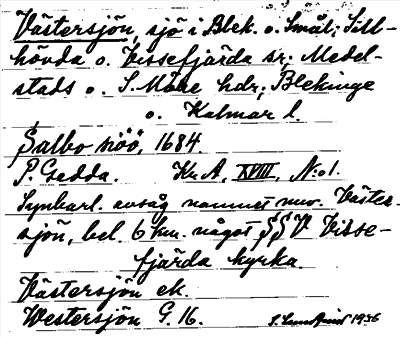 Västersjön, sjö i Blek. o. Smål; Till-
hövda o. Vissefjärda sr; Medel-
stads o. S. Möre hdr; Blekinge
o. Kalmar l.
Salbo siöö, 1684.
P. Gedda. Kr. A, XVIII, N:o 1.
Synbarl. avsåg namnet nuv. Väster-
sjön, bel. 6 km. något SSV Visse-
fjärda kyrka.
Västersjön ek.
Westersjön G. 16. 1936